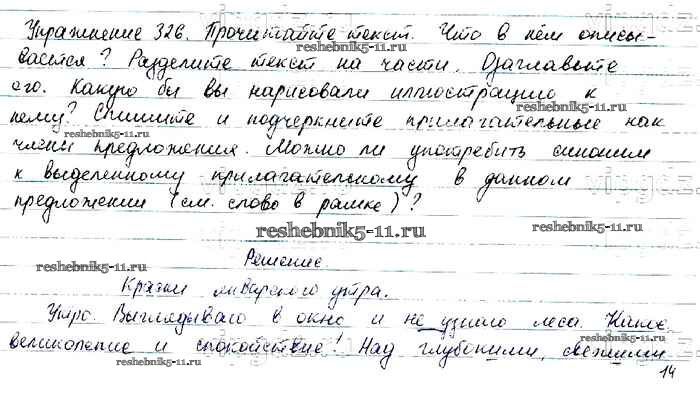 Упражнение 326. Прочитайте текст. Что в нём описы-
вается? Разделите текст на части. Озаглавьте
его. Какую бы вы нарисовали иллюстрацию к
нему? Спишите и подчеркните прилагательные как
члены предложения. Можно ли употребить синоним
к выделенному прилагательному в данном
предложении (см. слово в рамке)?
Решение
Краски январского утра.
Утро. Выглядываю в окно и не узнаю леса. Какое
великолепие и спокойствие! Над глубокими, свежими
14
reshebnik5-11.ru
reshebnik5-11.ru
reshebnik5-11.ru
reshebnik5-11.ru
reshebnik5-11.ru
reshebnik5-11.ru
reshebnik5-11.ru
reshebnik5-11.ru
reshebnik5-11.ru